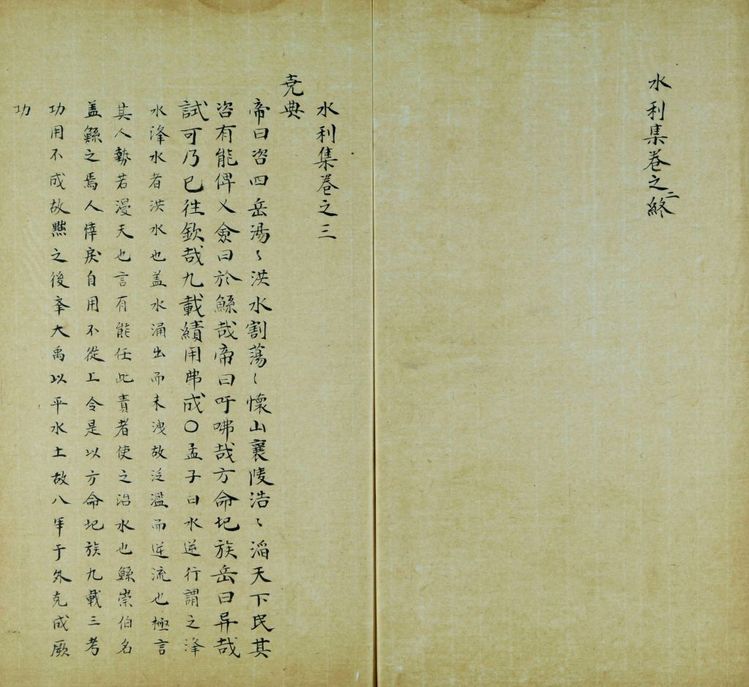 水利集卷之二終
水利集卷之三
堯典
帝曰咨四岳湯〻洪水割蕩〻懷山襄陵浩〻滔天下民其
咨有能俾乂僉曰於鯀哉帝曰吁咈哉方命圮族岳曰异哉
試可乃已往欽哉九載績用弗成〇孟子曰水逆行謂之洚
水洚水者洪水也盖水涌出而未洩故泛濫而逆流也極言
其大勢若漫天也言有能任此責者使之治水也鯀崇伯名
盖鯀之爲人悻戾自用不從上令是以方命圮族九載三考
功用不成故黜之後舉大禹以平水土故八年于外克成厥
功